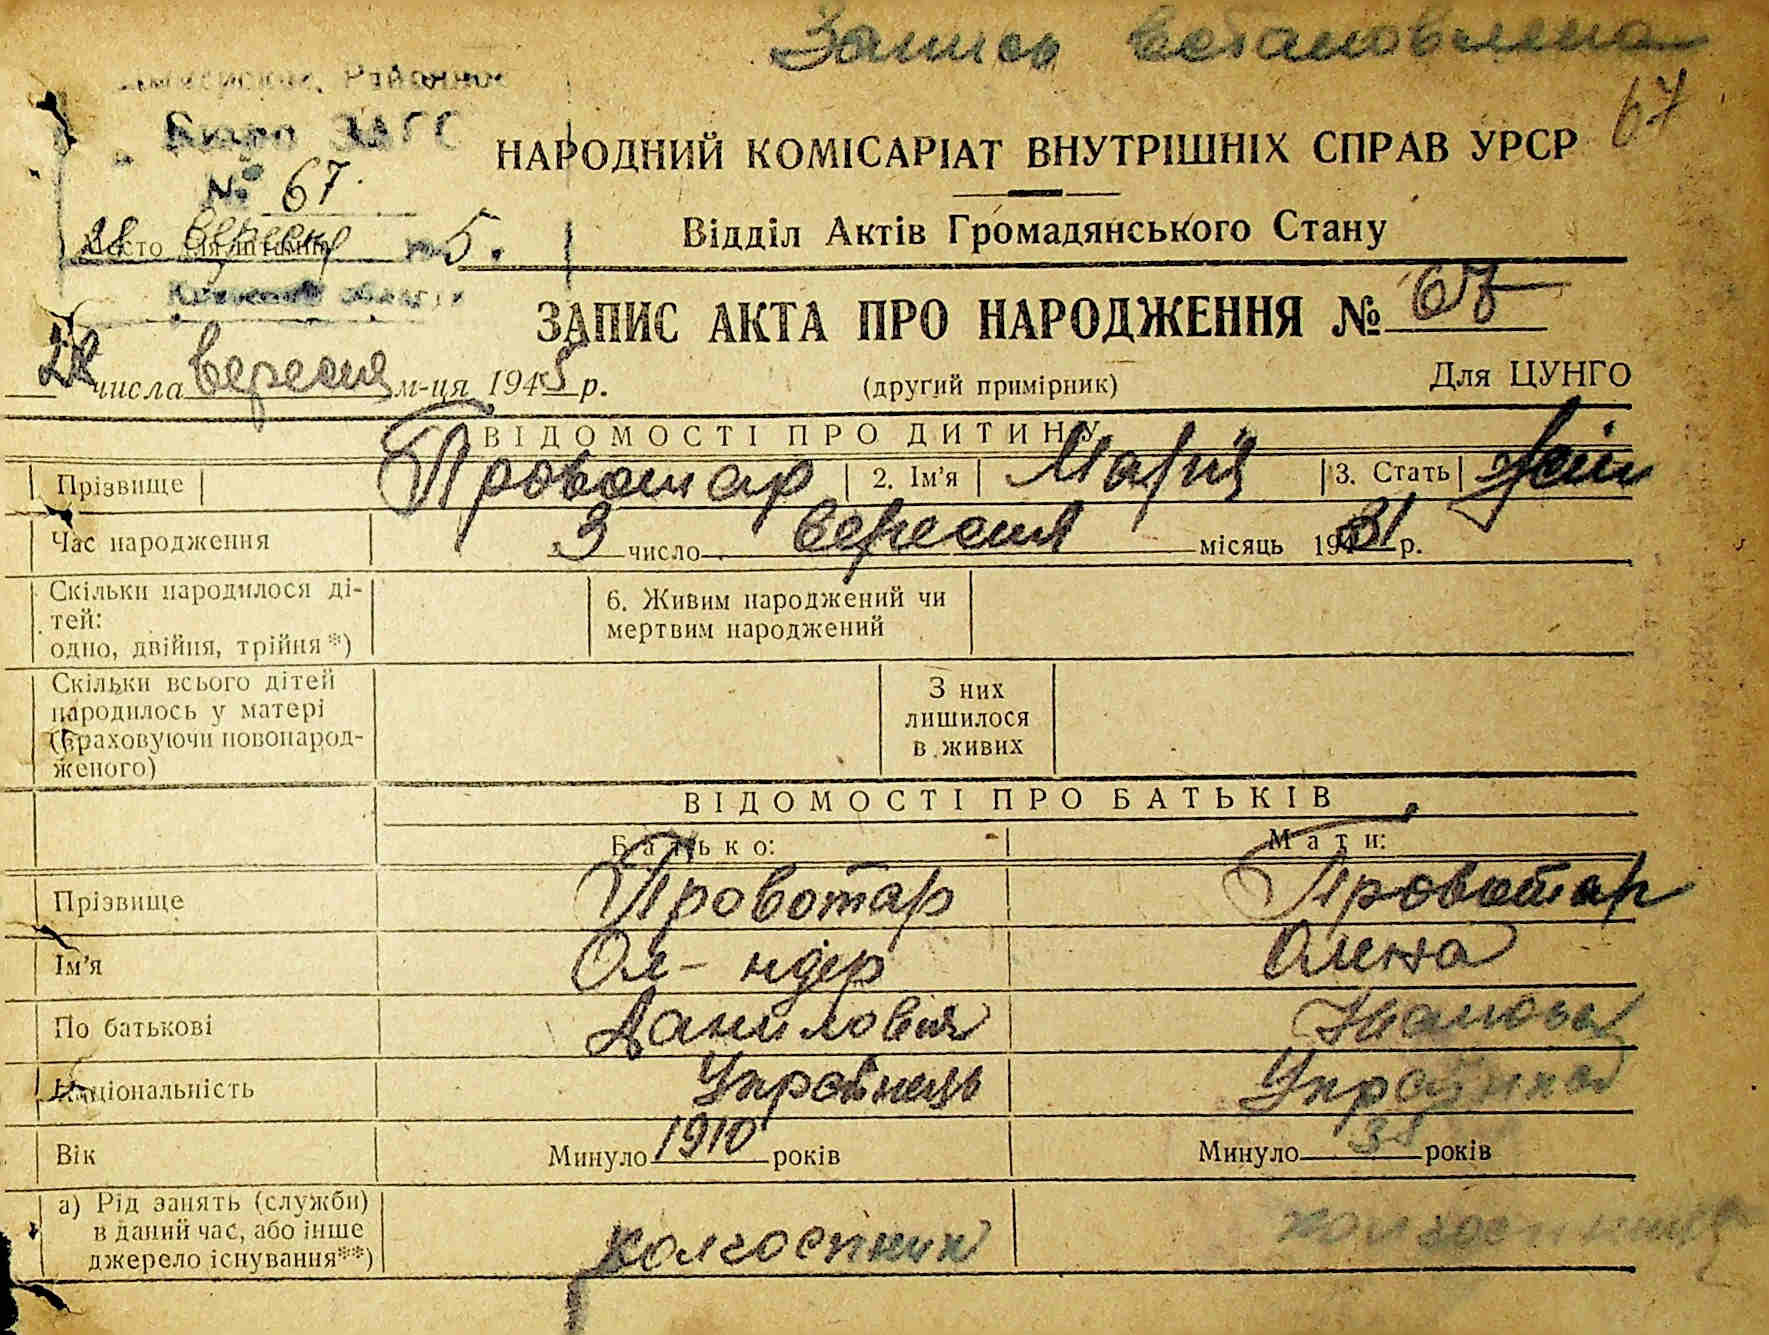 Запись встановлена
67
Районное
Бюро ЗАГС
№ 67.
28 вересня 5.
Место для штампа
области
НАРОДНИЙ КОМІСАРІАТ ВНУТРІШНІХ СПРАВ УРСР
Відділ Актів Громадянського Стану
ЗАПИС АКТА ПРО НАРОДЖЕННЯ № 67
28 числа вересня м-ця 1945 р.
(другий примірник)
Для ЦУНГО
ВІДОМОСТІ ПРО ДИТИНУ
Прізвище Провотар 2. Ім'я Марія 3. Стать жін
Час народження 3 число вересня місяць 1931 р.
Скільки народилося ді-
тей:
одно, двійня, трійня*)
6. Живим народжений чи
мертвим народжений
Скільки всього дітей
народилось у матері
(враховуючи новонарод-
женого)
З них
лишилося
в живих
ВІДОМОСТІ ПРО БАТЬКІВ
Батько: Мати:
Прізвище Провотар Провотар
Ім'я Ол-ндер Олена
По батькові Данилович Іванов
Національність Українець Українка
Вік Минуло 1910 років Минуло років
а) Рід занять (служби)
в даний час, або інше
джерело існування**)
колгоспник колгоспниця